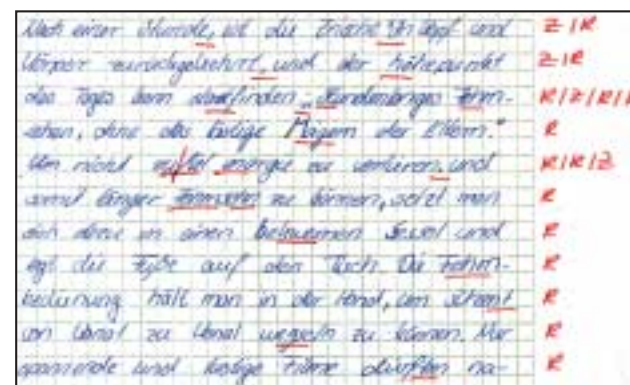 Nach einer Stunde, ist die Frische In Kopf und Z/R
Körper zurückgekehrt, und der höhepunkt Z/R
des Tages kann stattfinden „ stundenlanges Fehrn- R/Z/R/R
sehen, ohne das lästige der Eltern." R
Um nicht energie zu verlieren, und R/R/Z
somit länger zu können, setzt man R
sich in einen Sessel und R
legt die Füße auf den Tisch. Die Fehrn- R
bedienung hält man in der Hand, um R
von Kanal zu Kanal zu können. Nur R
spannende und lustige Filme dürften na- R